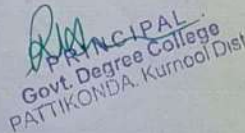 PRINCIPAL
Govt. Degree College
PATTIKONDA. Kurnool Dist